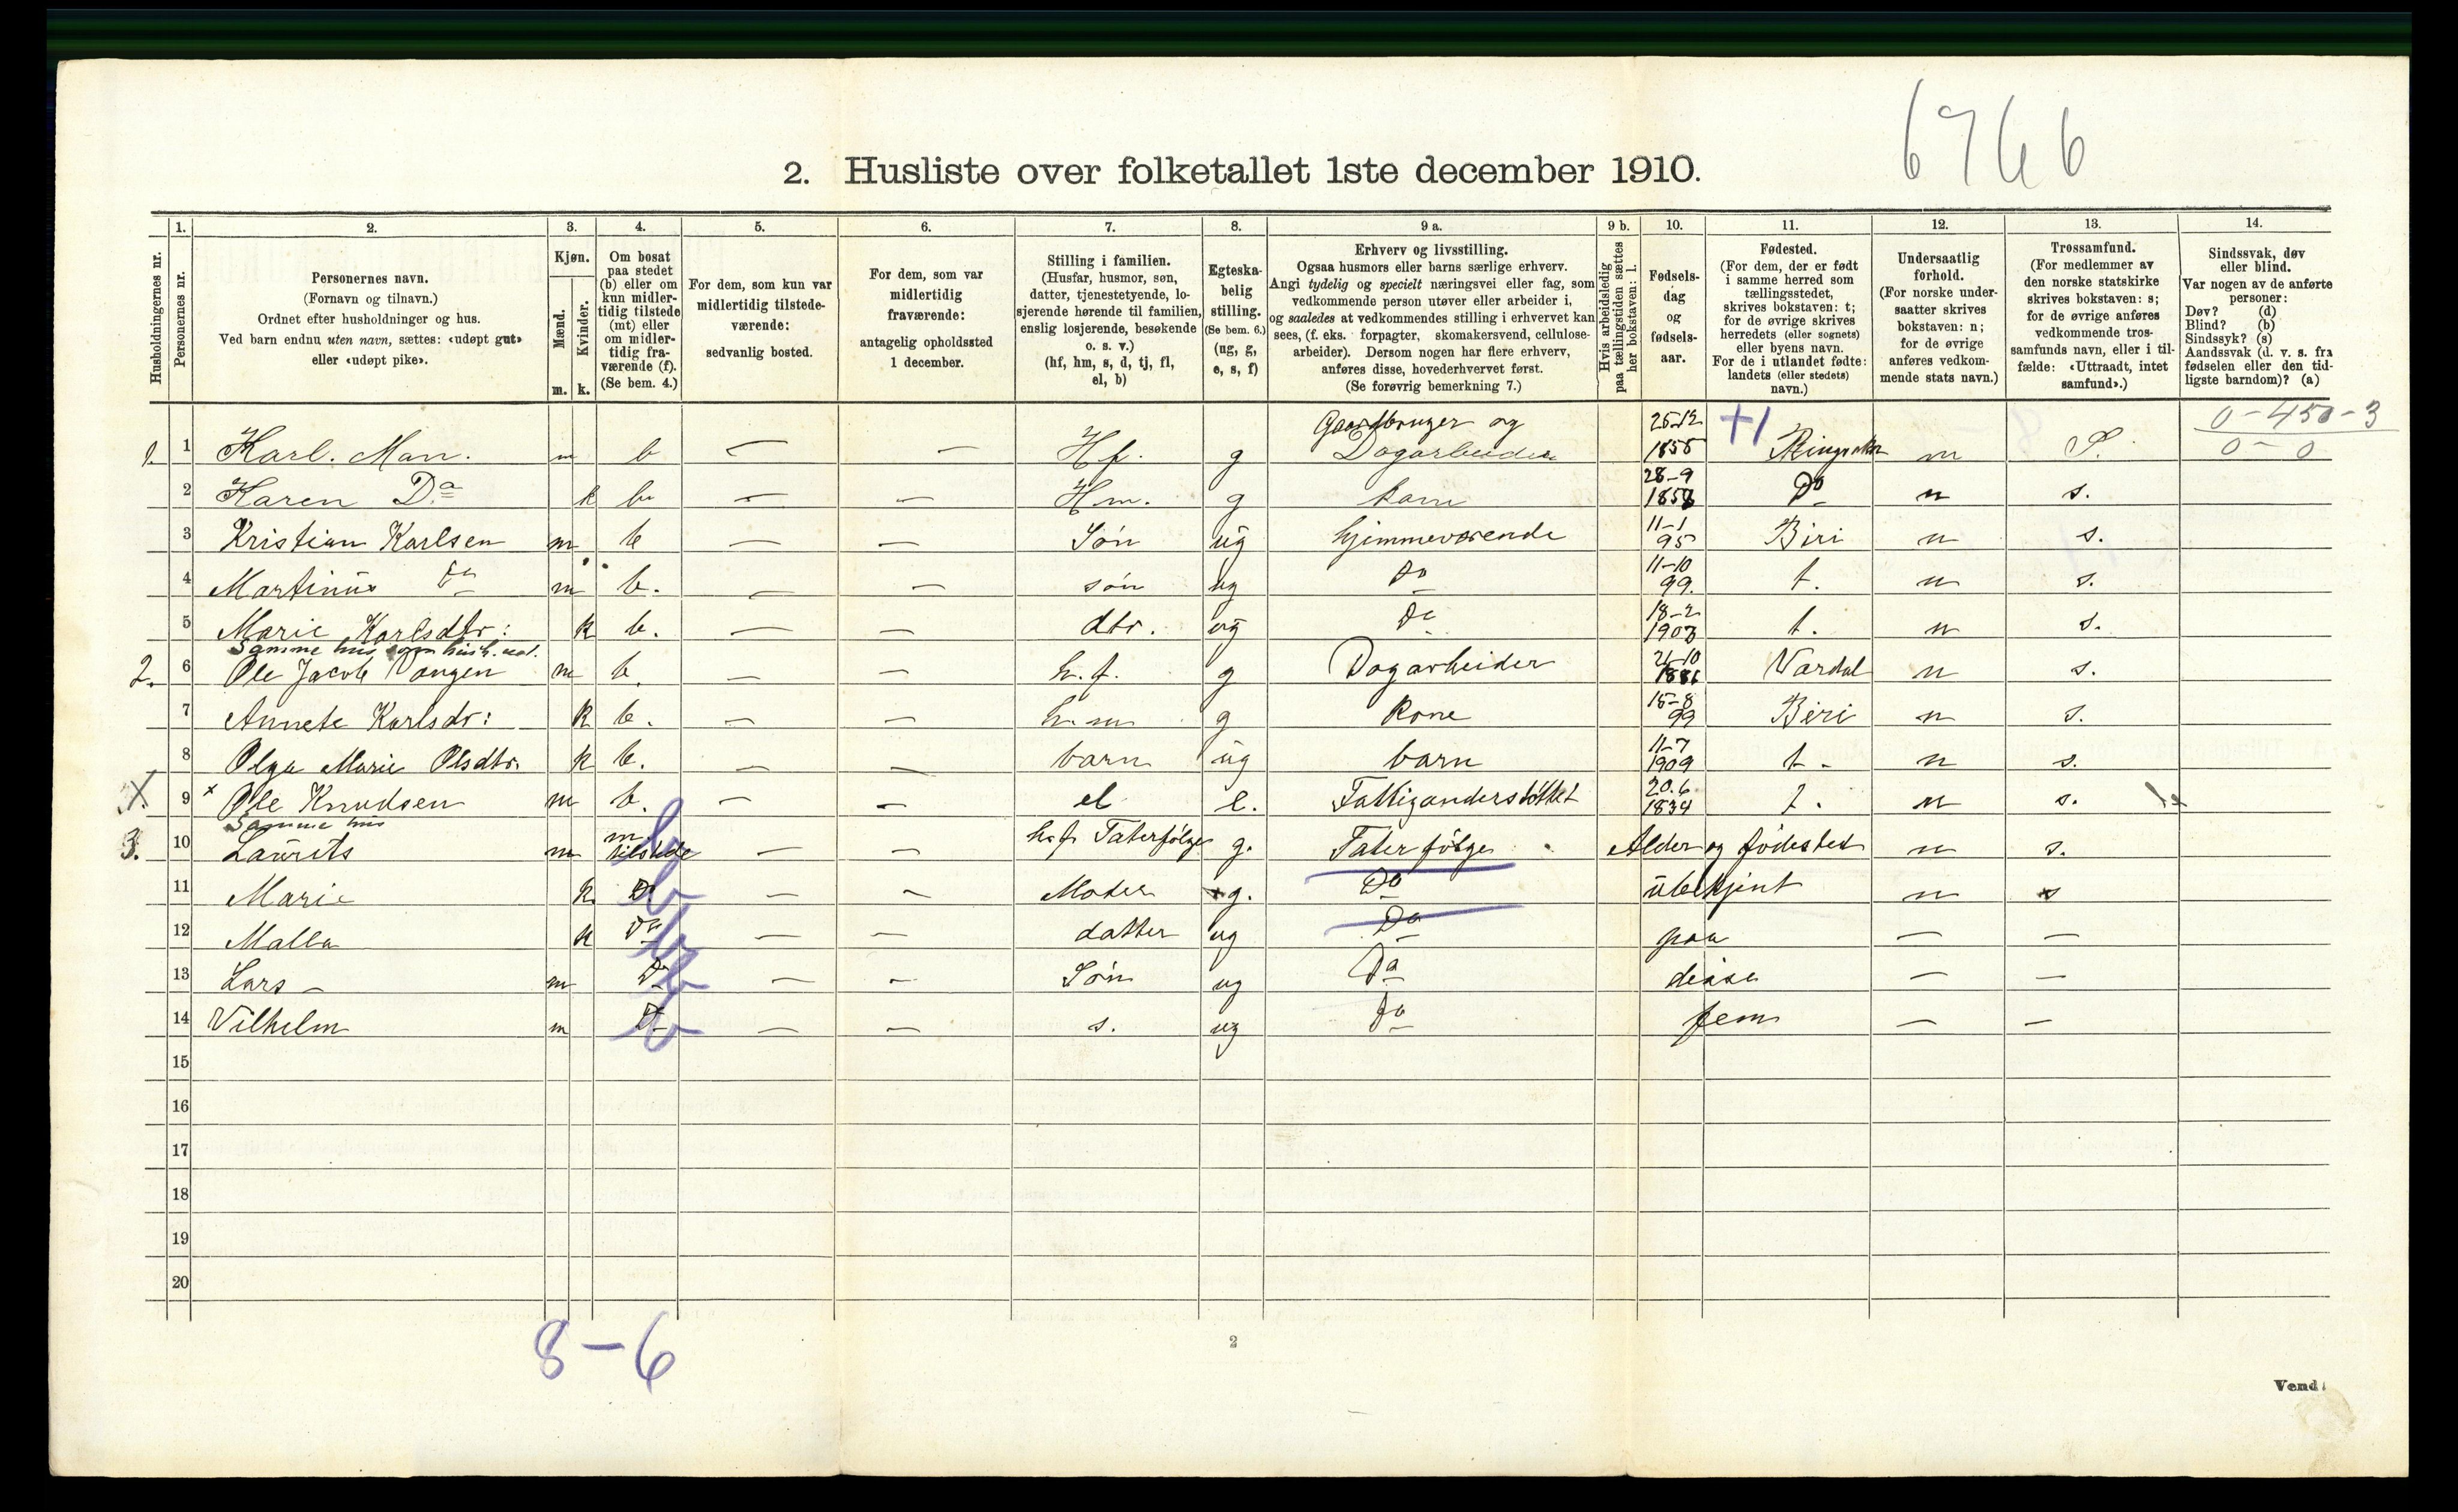 6766
2. Husliste over folketallet 1ste december 1910.
Husholdningernes nr.
1. Personernes nr.
2. Personernes navn.
(Fornavn og tilnavn.)
Ordnet efter husholdninger og hus.
Ved barn endnu uten navn, sættes: «udøpt gut»
eller «udøpt pike».
3. Kjøn.
Mænd. m.
Kvinder. k.
4. Om bosat
paa stedet
(b) eller om
kun midler-
tidig tilstede
(mt) eller
om midler-
tidig fra-
værende (f).
(Se bem. 4.)
5. For dem, som kun var
midlertidig tilstede-
værende:
sedvanlig bosted.
6. For dem, som var
midlertidig
fraværende:
antagelig opholdssted
1 december.
7. Stilling i familien.
(Husfar, husmor, søn,
datter, tjenestetyende, lo-
sjerende hørende til familien,
enslig losjerende, besøkende
o. s. v.)
(hf, hm, s, d, tj, fl,
el, b)
8. Egteska-
belig
stilling.
(Se bem. 6.)
(ug, g,
e, s, f)
9 a. Erhverv og livsstilling.
Ogsaa husmors eller barns særlige erhverv.
Angi tydelig og specielt næringsvei eller fag, som
vedkommende person utøver eller arbeider i,
og saaledes at vedkommendes stilling i erhvervet kan
sees, (f. eks. forpagter, skomakersvend, cellulose-
arbeider). Dersom nogen har flere erhverv,
anføres disse, hovederhvervet først.
(Se forøvrig bemerkning 7.)
9 b. Hvis arbeidsledig
paa tællingstiden sættes
her bokstaven: l.
10. Fødsels-
dag
og
fødsels-
aar.
11. Fødested.
(For dem, der er født
i samme herred som
tællingsstedet,
skrives bokstaven: t;
for de øvrige skrives
herredets (eller sognets)
eller byens navn.
For de i utlandet fødte:
landets (eller stedets)
navn.)
12. Undersaatlig
forhold.
(For norske under-
saatter skrives
bokstaven: n;
for de øvrige
anføres vedkom-
mende stats navn.)
13. Trossamfund.
(For medlemmer av
den norske statskirke
skrives bokstaven: s;
for de øvrige anføres
vedkommende tros-
samfunds navn, eller i til-
fælde: «Uttraadt, intet
samfund».)
14. Sindssvak, døv
eller blind.
Var nogen av de anførte
personer:
Døv? (d)
Blind? (b)
Sindssyk? (s)
Aandssvak (d. v. s. fra
fødselen eller den tid-
ligste barndom)? (a)
0-450-3
0-0
+1
1. 1 Karl. Man. m b — — Hf. g Gaardbruger og Dagarbeider 25-12 1855 n S.
2 Karen Do k b — — Hm. g kone 28-9 Do n s.
3 Kristian Karlsen m b — — Søn ug hjemmeværende 11-1 95 Biri n s.
4 Martinus Do m b. — — søn ug Do 11-10 99. t. n s.
5 Marie Karlsdtr: k b. — — dtr. ug Do 18-2 t. n s.
Samme hus som
2. 6 Ole Jacob Vangen m b. — — h.f. g Dagarbeider 21-10 Vardal n s.
7 Annete Karlsdr: k b. — — h.m g kone 15-8 99 Biri n s.
8 Olga Marie Olsdtr. k b. — — barn ug barn 11-7 1909 t. n s.
X. 9 x Ole Knudsen m b. — — el e. Fattigunderstöttet 20.6 1834 t. n s.
Samme hus
3. 10 Laurits m m. tilstede b — — h.f. Taterfølge g. Taterfølge Alder og födested n s.
11 Marie k. Do b — — Moder g. Do ubekjent n s
12 Malla k Do b — — datter ug Do paa — —
13 Lars - m Do b — — Søn ug Do disse — —
14 Vilhelm m Do b — — s. ug Do fem — —
15
16
17
18
19
20
8-6
2
Vend!